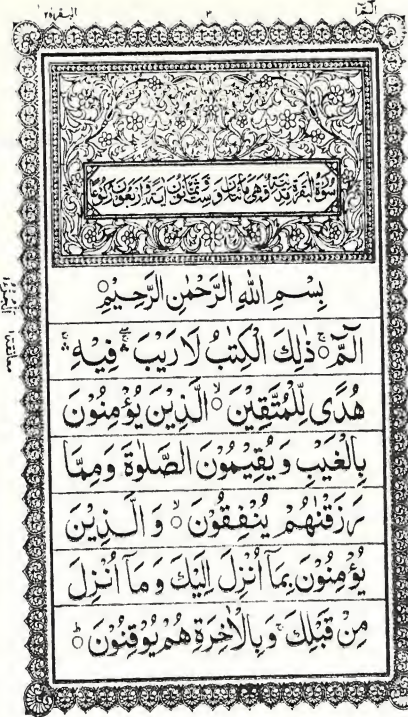 البقرة ٢
٣
الٓمّٓ
سُوْرَةُ الْبَقَرَةِ مَدَنِيَّةٌ وَّهِىَ مِائَتَانِ وَسِتٌّ وَّثَمَانُوْنَ اٰيَةً وَّاَرْبَعُوْنَ رُكُوْعًا
بِسْمِ اللّٰهِ الرَّحْمٰنِ الرَّحِيْمِ
الٓمّٓ ۚ ذٰلِكَ الْكِتٰبُ لَا رَيْبَ ۛ فِيْهِ ۛ
هُدًى لِّلْمُتَّقِيْنَ ۙ الَّذِيْنَ يُؤْمِنُوْنَ
بِالْغَيْبِ وَيُقِيْمُوْنَ الصَّلٰوةَ وَمِمَّا
رَزَقْنٰهُمْ يُنْفِقُوْنَ ۙ وَالَّذِيْنَ
يُؤْمِنُوْنَ بِمَآ اُنْزِلَ اِلَيْكَ وَمَآ اُنْزِلَ
مِنْ قَبْلِكَ ۚ وَبِالْاٰخِرَةِ هُمْ يُوْقِنُوْنَ ؕ
معانقة ١